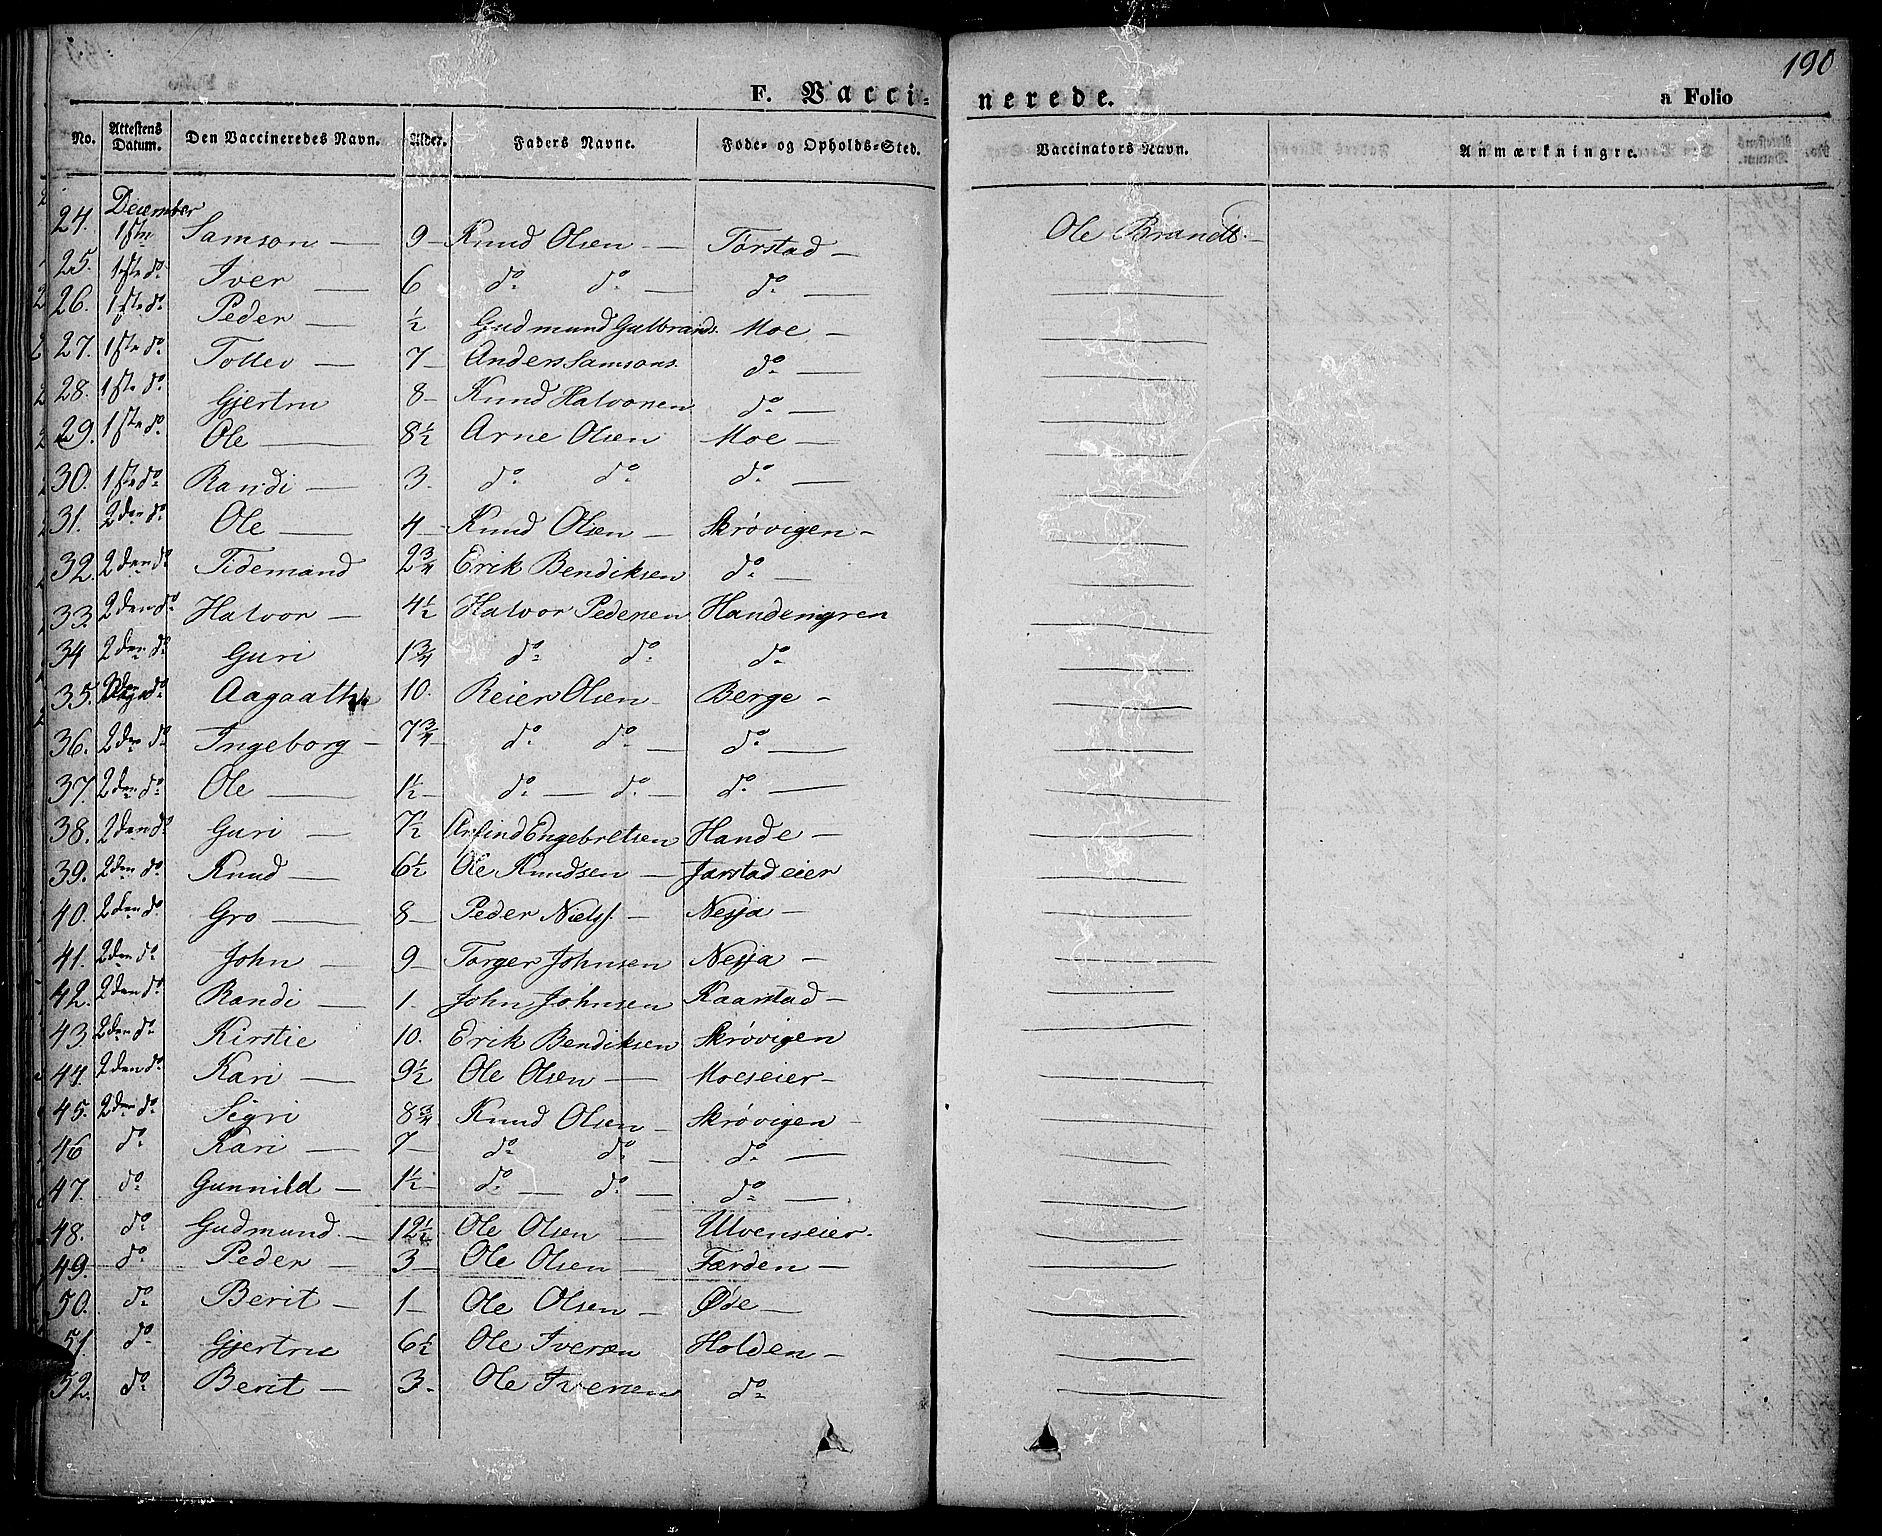 190
F. Vacci- nerede. a Folio
No. Attestens Datum. Den Vaccineredes Navn. Alder. Faders Navne. Føde- og Opholds-Sted. Vaccinators Navn. Anmærkninger.
24. December 1ste Samson — 9 — Knud Olsen — Torstad — Ole Brandt. —
25. 1ste do Iver — 6 do do — do —
26. 1ste do Peder — ½ Gudmund Gulbrands. Moe —
27. 1ste do Tollev — 7 — Anders Samsons. do —
28. 1ste do Gjertru 8 — Knud Halvorsen do —
29. 1ste do Ole — 8½ Arne Olsen Moe —
30. 1ste do Randi — 3. do do do —
31. 2den do Ole — 4 — Knud Olsen — Skrøvigen —
32. 2den do Tidemand 2¾ Erik Bendiksen do —
33. 2den do Halvor — 4½ Halvor Pedersen Handengren
34 2den do Guri 1¾ do do do
35. 2den do Aagaathe 10. Reier Olsen — Berge —
36. 2den do Ingeborg — 7¾ do do — do —
37. 2den do Ole — 1½ do — do — do —
38. 2den do Guri — 7½ Arfind Engebretsen Hande —
39. 2den do Knud — 6½ Ole Knudsen — Jarstadeier
40. 2den do Gro — 8 — Peder Niels. — Nesja —
41. 2den do John — 9 — Torger Johnsen Nesja —
42. 2den do Randi — 1. John Johnsen Kaarstad —
43 2den do Kirstie 10. Erik Bendiksen Skrøvigen
44. 2den do Kari — 9½ Ole Olsen — Moeseier —
45. 2den do Sigri 8¾ Knud Olsen — Skrøvigen —
46 do Kari — 7 — do do — do —
47. do Gunnild — 1½ do — do — do —
48. do Gudmund. — 12½ Ole Olsen — Ulvenseier.
49. do Peder — 3 — Ole Olsen — Færden —
50. do Berit — 1 — Ole Olsen — Øde —
51. do Gjertru 6½ Ole Iversen Holden —
52. do Berit — 3. Ole Iversen do